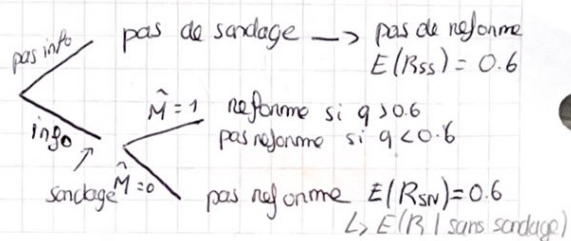 pas info
pas de sondage → pas de reforme
E(Rss) = 0.6
info
sondage
M̂ = 1 reforme si q > 0.6
pas reforme si q < 0.6
M̂ = 0 pas reforme E(RSN) = 0.6
↳ E(R | sans sondage)